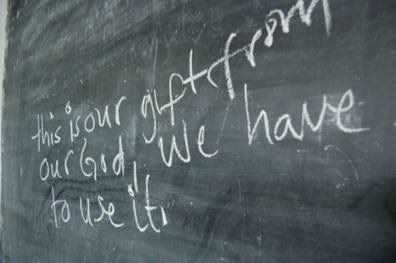 this is our gift from
our God! We have
to use it.